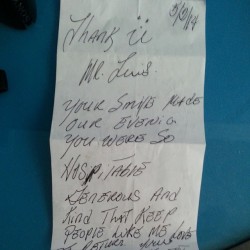 5/5/14
Thank ü
Mr. Luis.
Your Smile Made
Our Evenig
You Were So
Hospitable
Generous And
Kind That Keep
People Like Me